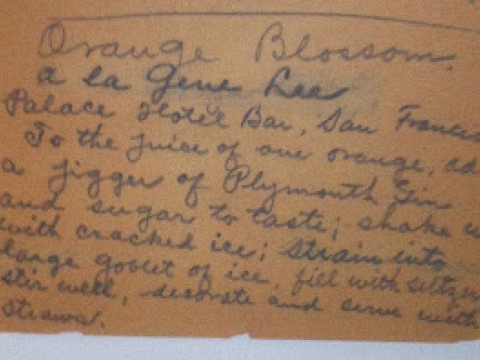 Orange Blossom.
a la Gene Lee
Palace Hotel Bar, San Francis
To the juice of one orange, ad
a jigger of Plymouth Gin
and sugar to taste; shake w
with cracked ice; strain into
large goblet of ice, fill with seltzer
stir well, decorate and serve with
straws.